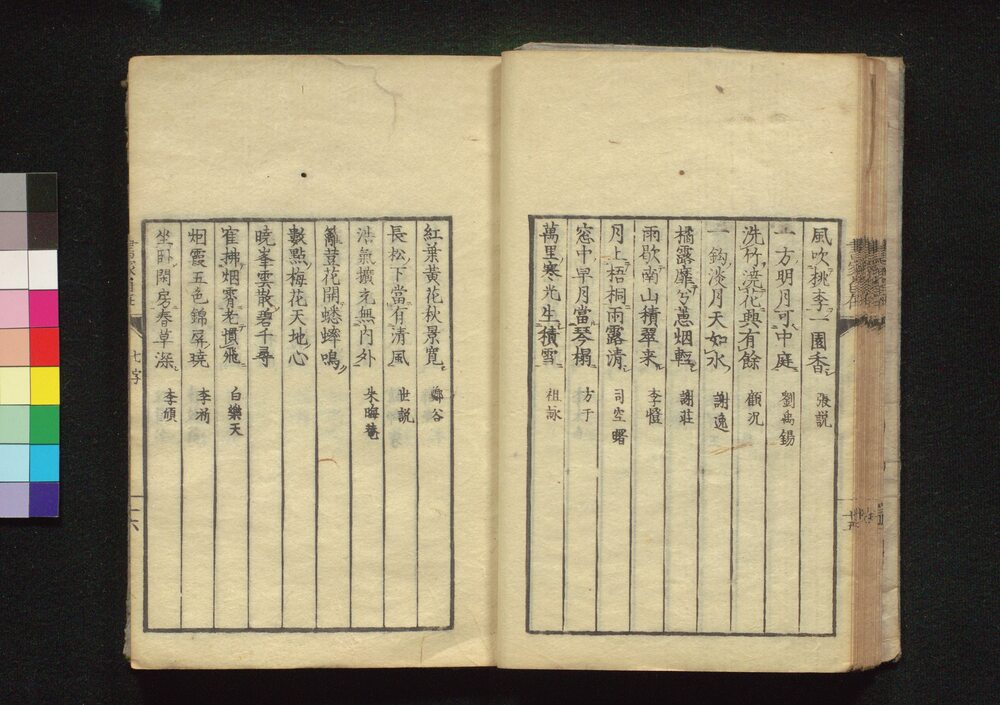 風吹桃李一園香 張説
一方明月可中庭 劉禹錫
洗竹澆花興有餘 顧况
一鈎淡月天如水 謝逸
橘露靡兮蕙烟輕 謝莊
雨歇南山積翠来 李憕
月上梧桐雨露清 司空曙
窓中早月當琴榻 方干
萬里寒光生積雪 祖詠
紅葉黃花秋景寛
長松下當有清風 世説
浩氣擴充無内外 朱晦菴
籬荳花開蟋蟀鳴
數點梅花天地心
曉峯雲散碧千尋
寉拂烟霄老慣飛 白樂天
烟霞五色錦屏
坐卧閑房春草深 李頎
七字